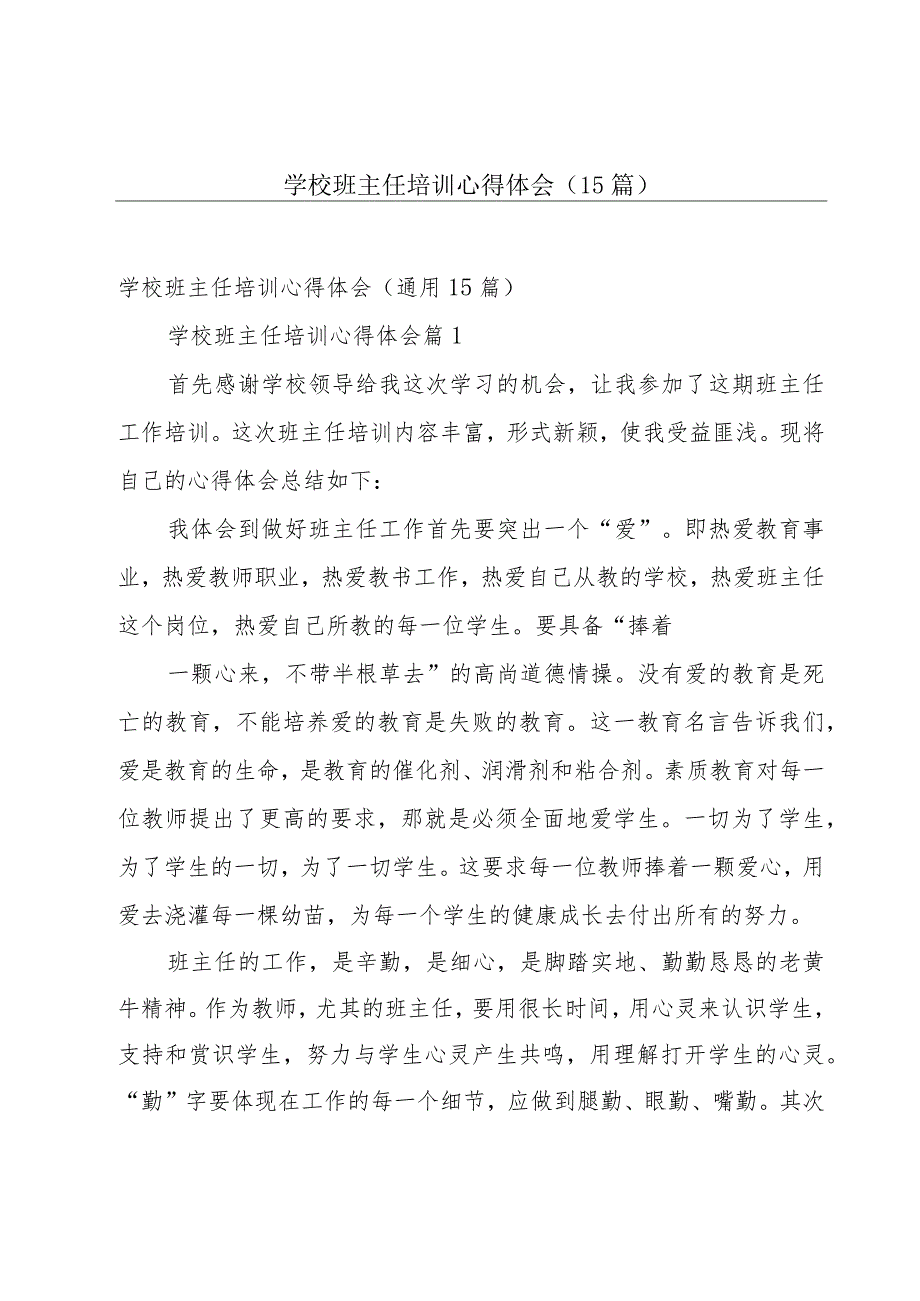 学校班主任培训心得体会（15 篇）
学校班主任培训心得体会（通用 15 篇）
学校班主任培训心得体会篇 1
首先感谢学校领导给我这次学习的机会，让我参加了这期班主任
工作培训。这次班主任培训内容丰富，形式新颖，使我受益匪浅。现将
自己的心得体会总结如下：
我体会到做好班主任工作首先要突出一个“爱”。即热爱教育事
业，热爱教师职业，热爱教书工作，热爱自己从教的学校，热爱班主任
这个岗位，热爱自己所教的每一位学生。要具备“捧着
一颗心来，不带半根草去”的高尚道德情操。没有爱的教育是死
亡的教育，不能培养爱的教育是失败的教育。这一教育名言告诉我们，
爱是教育的生命，是教育的催化剂、润滑剂和粘合剂。素质教育对每一
位教师提出了更高的要求，那就是必须全面地爱学生。一切为了学生，
为了学生的一切，为了一切学生。这要求每一位教师捧着一颗爱心，用
爱去浇灌每一棵幼苗，为每一个学生的健康成长去付出所有的努力。
班主任的工作，是辛勤，是细心，是脚踏实地、勤勤恳恳的老黄
牛精神。作为教师，尤其的班主任，要用很长时间，用心灵来认识学生，
支持和赏识学生，努力与学生心灵产生共鸣，用理解打开学生的心灵。
“勤”字要体现在工作的每一个细节，应做到腿勤、眼勤、嘴勤。其次